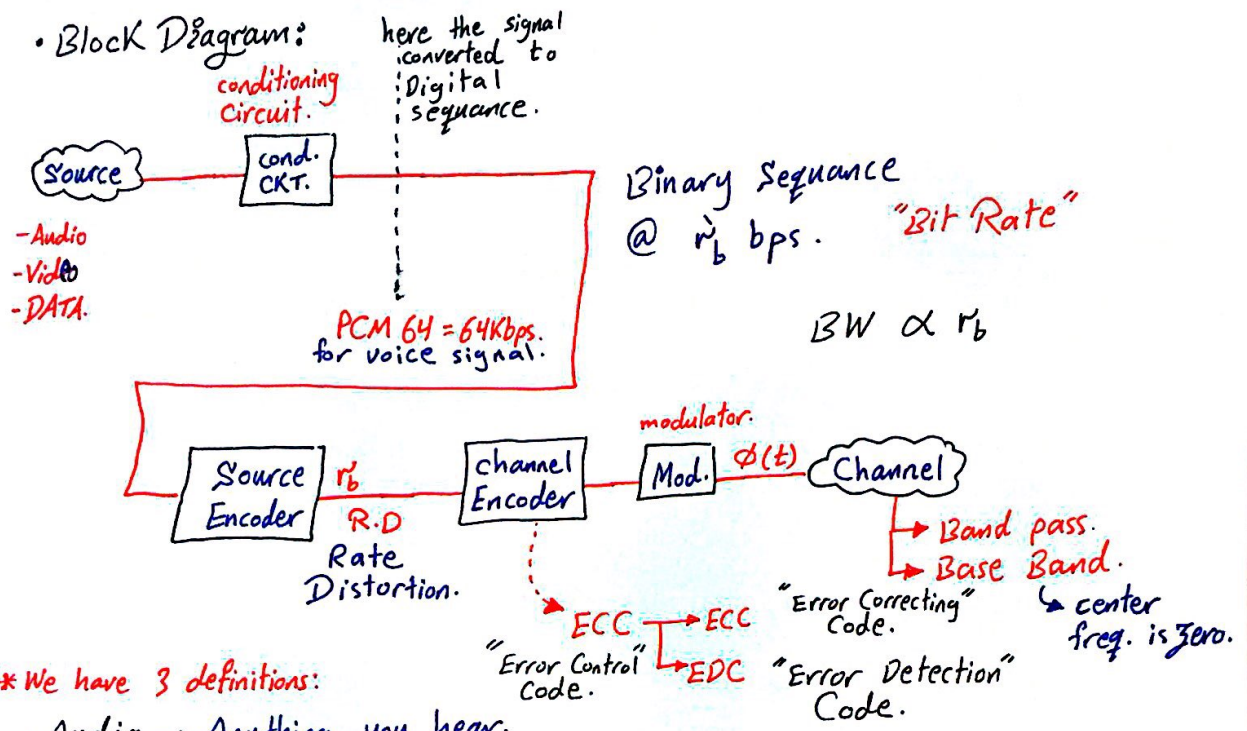 • Block Diagram:
here the signal
converted to
Digital
sequance.
conditioning
Circuit.
Source
cond.
CKT.
-Audio
-Video
-DATA.
Binary Sequance
@ r̀b bps.
"Bit Rate"
PCM 64 = 64Kbps.
for voice signal.
BW ∝ rb
Source
Encoder
rb
R.D
Rate
Distortion.
channel
Encoder
modulator.
Mod.
Ø(t)
Channel
Band pass.
Base Band.
center
freq. is zero.
ECC
"Error Control"
Code.
ECC
"Error Correcting"
Code.
EDC
"Error Detection"
Code.
* We have 3 definitions:
Audio Anything you hear.